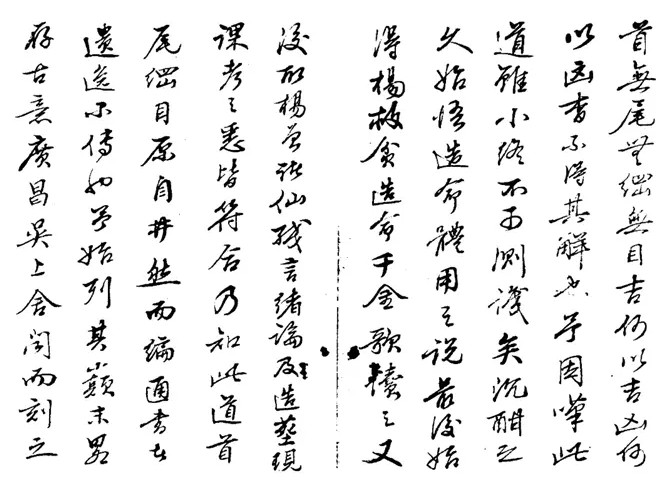 首無尾無綱無目吉何以吉凶何
以凶杳不得其解也予因嘆此
道雖小終不可測淺矣沉酣之
久始悟造命體用之說最後始
得楊救貧造命千金歌讀之又
後取楊曾諸仙殘言緒論及造葬現
課考之悉皆符合乃知此道首
尾綱目原自井然而編通書者
遺逸不傳也予始列其巔末畧
存古意廣昌吳上舍閱而刻之